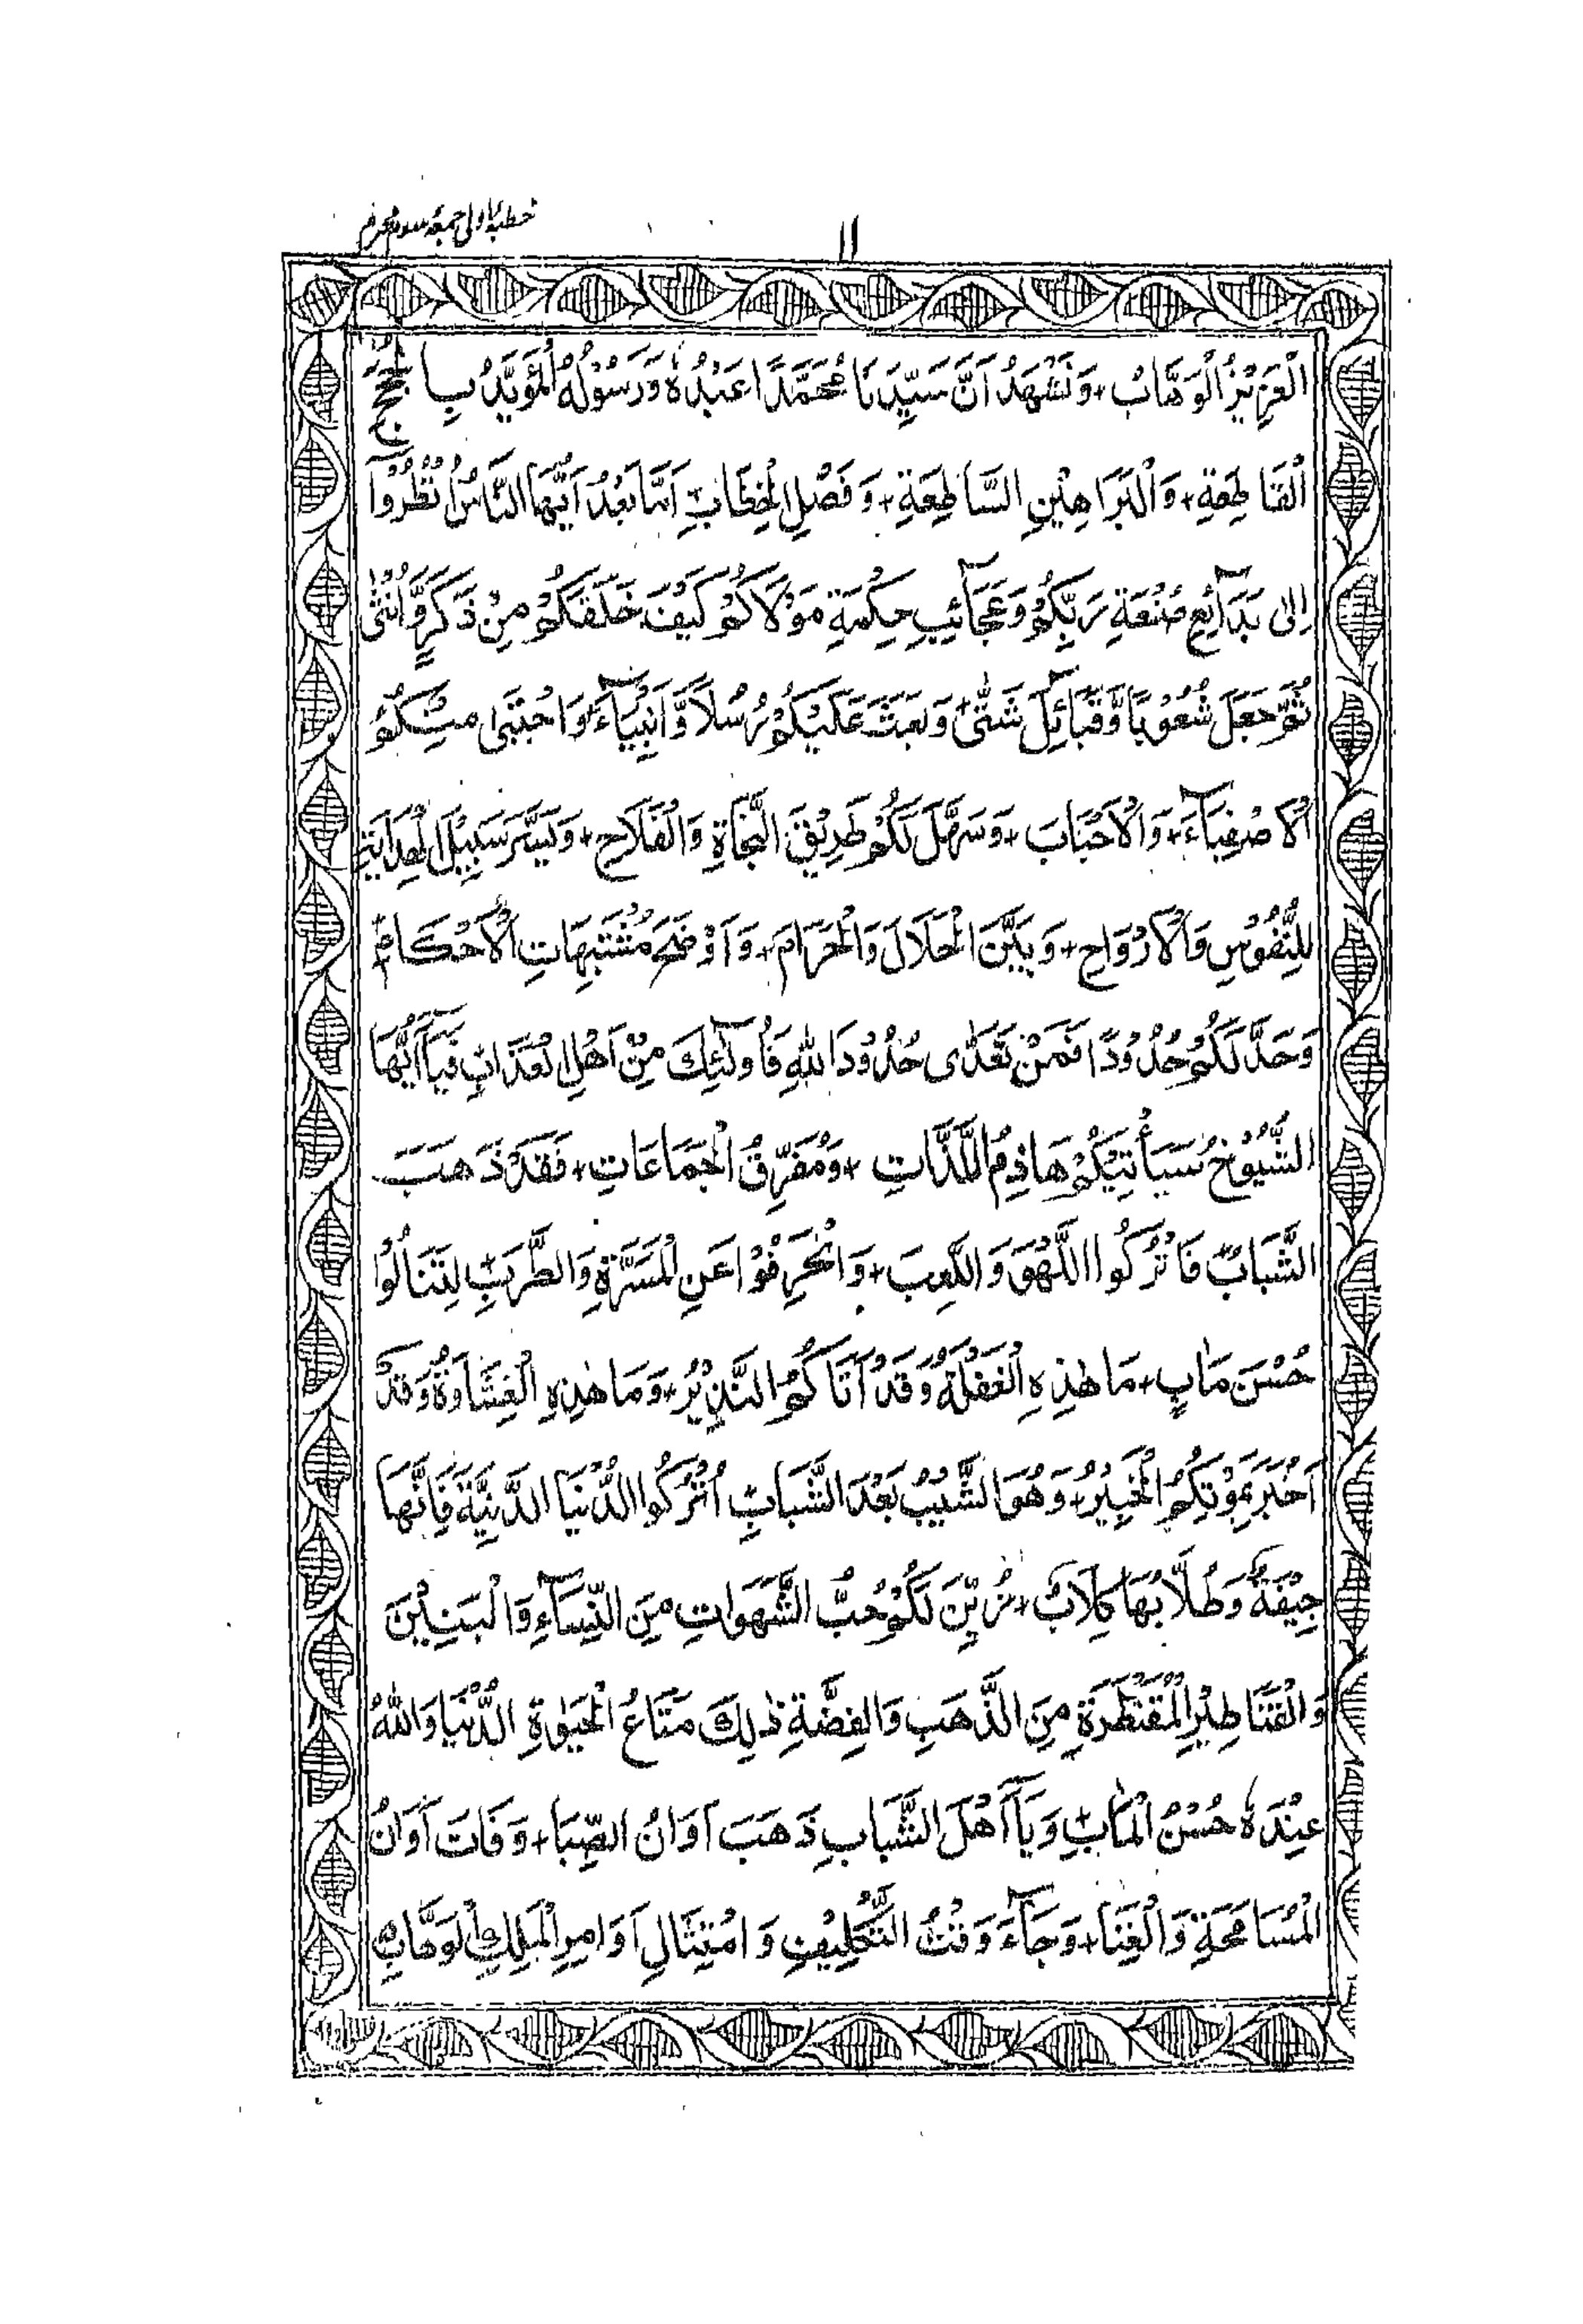 خطبۂ اولی جمعہ سوم محرم
۱۱
اَلْعَزِيْزُ الْوَهَّابُ + وَنَشْهَدُ اَنَّ سَيِّدَنَا مُحَمَّدًا عَبْدُهٗ وَرَسُوْلُهُ الْمُؤَيَّدُ بِالْحُجَجِ
الْقَاطِعَةِ + وَالْبَرَاهِيْنِ السَّاطِعَةِ + وَفَصْلِ الْخِطَابِ اَمَّا بَعْدُ اَيُّهَا النَّاسُ انْظُرُوْآ
اِلٰى بَدَآئِعِ صَنْعَةِ رَبِّكُمْ وَعَجَآئِبِ حِكْمَةِ مَوْلَاكُمْ كَيْفَ خَلَقَكُمْ مِنْ ذَكَرٍ وَّاُنْثٰى
ثُمَّ جَعَلَ شُعُوْبًا وَّقَبَآئِلَ شَتّٰى + وَبَعَثَ عَلَيْكُمْ رُسُلًا وَّاَنْبِيَآءَ + وَاجْتَبٰى مِنْكُمُ
الْاَصْفِيَآءَ + وَالْاَحْبَابَ + وَسَهَّلَ لَكُمْ طَرِيْقَ النَّجَاةِ وَالْفَلَاحِ + وَيَسَّرَ سَبِيْلَ الْهِدَايَةِ
لِلنُّفُوْسِ وَالْاَرْوَاحِ + وَبَيَّنَ الْحَلَالَ وَالْحَرَامَ + وَاَوْضَحَ مُشْتَبِهَاتِ الْاَحْكَامِ
وَحَدَّ لَكُمْ حُدُوْدًا فَمَنْ تَعَدّٰى حُدُوْدَ اللّٰهِ فَاُولٰٓئِكَ مِنْ اَهْلِ الْعَذَابِ فَيَآ اَيُّهَا
الشُّيُوْخُ سَيَأْتِيْكُمْ هَاذِمُ اللَّذَّاتِ + وَمُفَرِّقُ الْجَمَاعَاتِ + فَقَدْ ذَهَبَ
الشَّبَابُ فَاتْرُكُوا اللَّهْوَ وَاللَّعِبَ + وَانْحَرِفُوْا عَنِ الْمَسَرَّةِ وَالطَّرَبِ لِتَنَالُوْا
حُسْنَ مَاٰبٍ + مَا هٰذِهِ الْغَفْلَةُ وَقَدْ اَتَاكُمُ النَّذِيْرُ + وَمَا هٰذِهِ الْغِشَاوَةُ وَقَدْ
اَخْبَرَ بِمَوْتِكُمُ الْخَبِيْرُ + وَهُوَ الشَّيْبُ بَعْدَ الشَّبَابِ اُتْرُكُوا الدُّنْيَا الدَّنِيَّةَ فَاِنَّهَا
جِيْفَةٌ وَطُلَّابُهَا كِلَابٌ + زُيِّنَ لَكُمْ حُبُّ الشَّهَوَاتِ مِنَ النِّسَآءِ وَالْبَنِيْنَ
وَالْقَنَاطِيْرِ الْمُقَنْطَرَةِ مِنَ الذَّهَبِ وَالْفِضَّةِ ذٰلِكَ مَتَاعُ الْحَيٰوةِ الدُّنْيَا وَاللّٰهُ
عِنْدَهٗ حُسْنُ الْمَاٰبِ وَيَآ اَهْلَ الشَّبَابِ ذَهَبَ اَوَانُ الصِّبَا + وَفَاتَ اَوَانُ
الْمُسَامَحَةِ وَالْغِنَا + وَجَآءَ وَقْتُ التَّكْلِيْفِ وَامْتِثَالِ اَوَامِرِ الْمَلِكِ الْوَهَّابِ